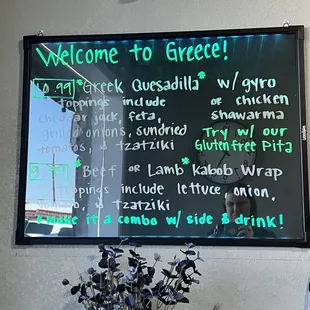 Welcome to Greece!
10.99 *Greek Quesadilla* w/ gyro
toppings include or chicken
cheddar jack, feta, shawarma
grilled onions, sundried Try w/ our
tomatos, & tzatziki Gluten free Pita
9.99 *Beef or Lamb* Kabob Wrap
toppings include lettuce, onion,
tomato, & tzatziki
* make it a combo w/ side & drink!